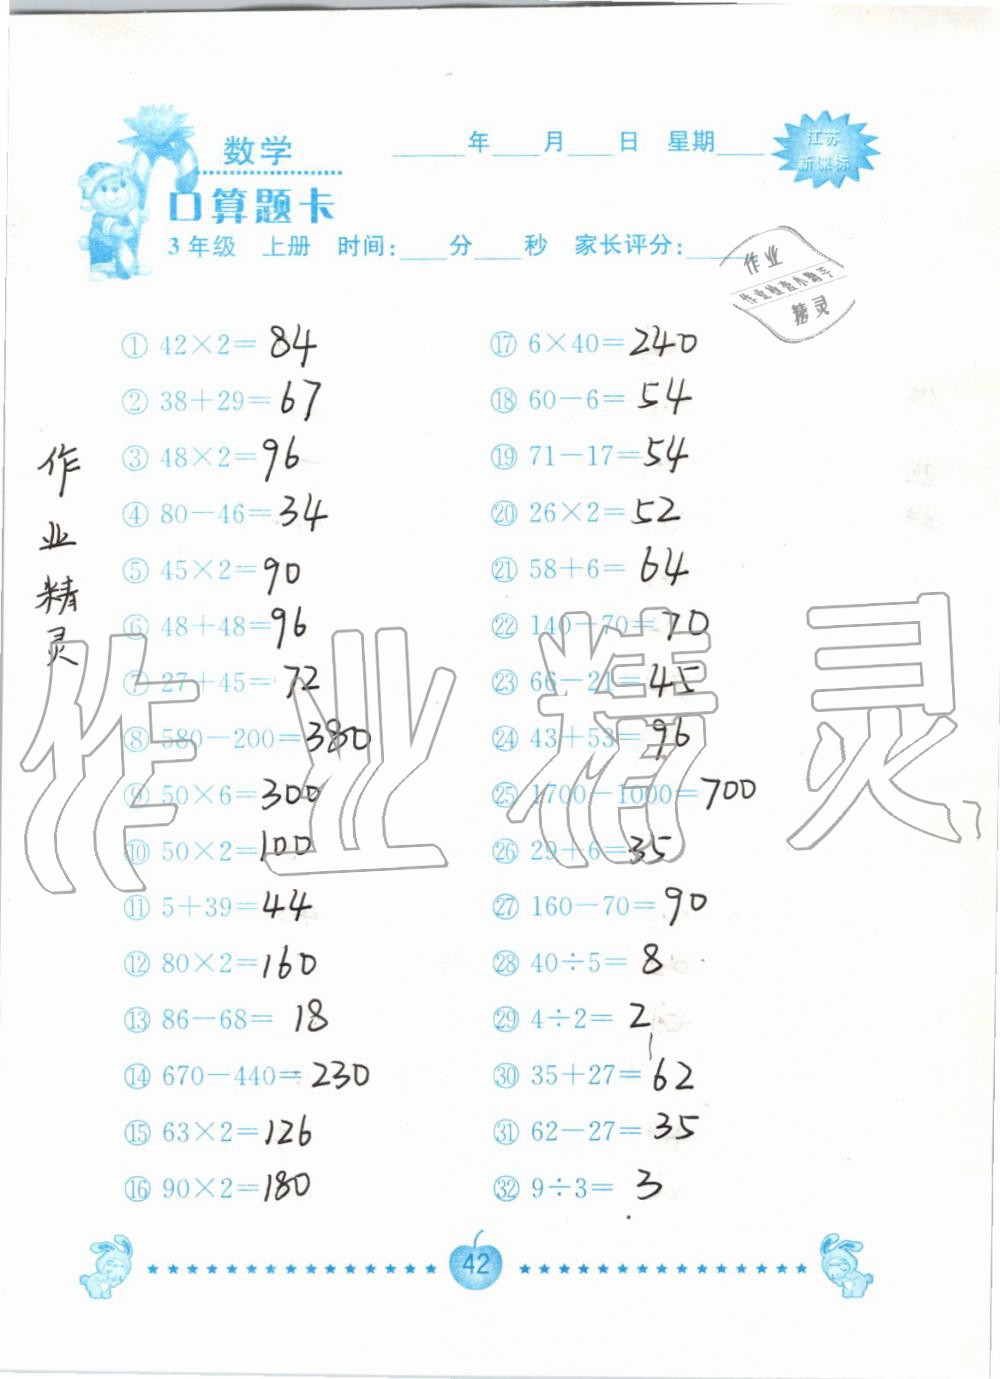 数学
____年____月____日 星期____
江苏
新课标
口算题卡
3年级 上册 时间:____分____秒 家长评分:____
作业
作业检查小助手
精灵
① 42×2=84
② 38+29=67
③ 48×2=96
④ 80-46=34
⑤ 45×2=90
⑥ 48+48=96
⑦ 27+45=72
⑧ 580-200=380
⑨ 50×6=300
⑩ 50×2=100
⑪ 5+39=44
⑫ 80×2=160
⑬ 86-68=18
⑭ 670-440=230
⑮ 63×2=126
⑯ 90×2=180
⑰ 6×40=240
⑱ 60-6=54
⑲ 71-17=54
⑳ 26×2=52
㉑ 58+6=64
㉒ 140-70=70
㉓ 66-21=45
㉔ 43+53=96
㉕ 1700-1000=700
㉖ 29+6=35
㉗ 160-70=90
㉘ 40÷5=8
㉙ 4÷2=2
㉚ 35+27=62
㉛ 62-27=35
㉜ 9÷3=3
作业精灵
作业精灵
42